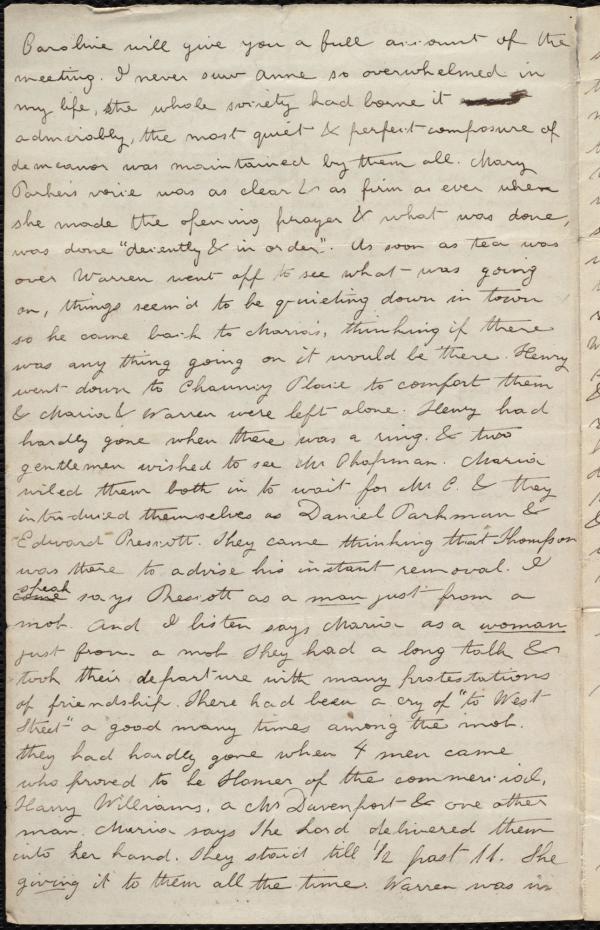 Caroline will give you a full account of the
meeting. I never saw Anne so overwhelmed in
my life, the whole society had borne it
admirably, the most quiet & perfect composure of
demeanor was maintained by them all. Mary
Parker's voice was as clear & as firm as ever when
she made the opening prayer & what was done,
was done "decently & in order". As soon as tea was
over Warren went off to see what was going
on, things seem'd to be quieting down in town
so he came back to Maria's, thinking if there
was any thing going on it would be there. Henry
went down to Chauncy Place to comfort them
& Maria & Warren were left alone. Henry had
hardly gone when there was a ring. & two
gentlemen wished to see Mr Chapman. Maria
invited them both in to wait for Mr C. & they
introduced themselves as Daniel Parkman &
Edward Prescott. They came thinking that Thompson
was there to advise his instant removal. I
speak
come says Prescott as a man just from a
mob. And I listen says Maria as a woman
just from a mob They had a long talk &
took their departure with many protestations
of friendship. There had been a cry of "to West
Street" a good many times among the mob.
they had hardly gone when 4 men came
who proved to be Homer of the commercial,
Harry Williams, a Mr Davenport & one other
man. Maria says the Lord delivered them
into her hand. They staid till 1/2 past 11. She
giving it to them all the time. Warren was in